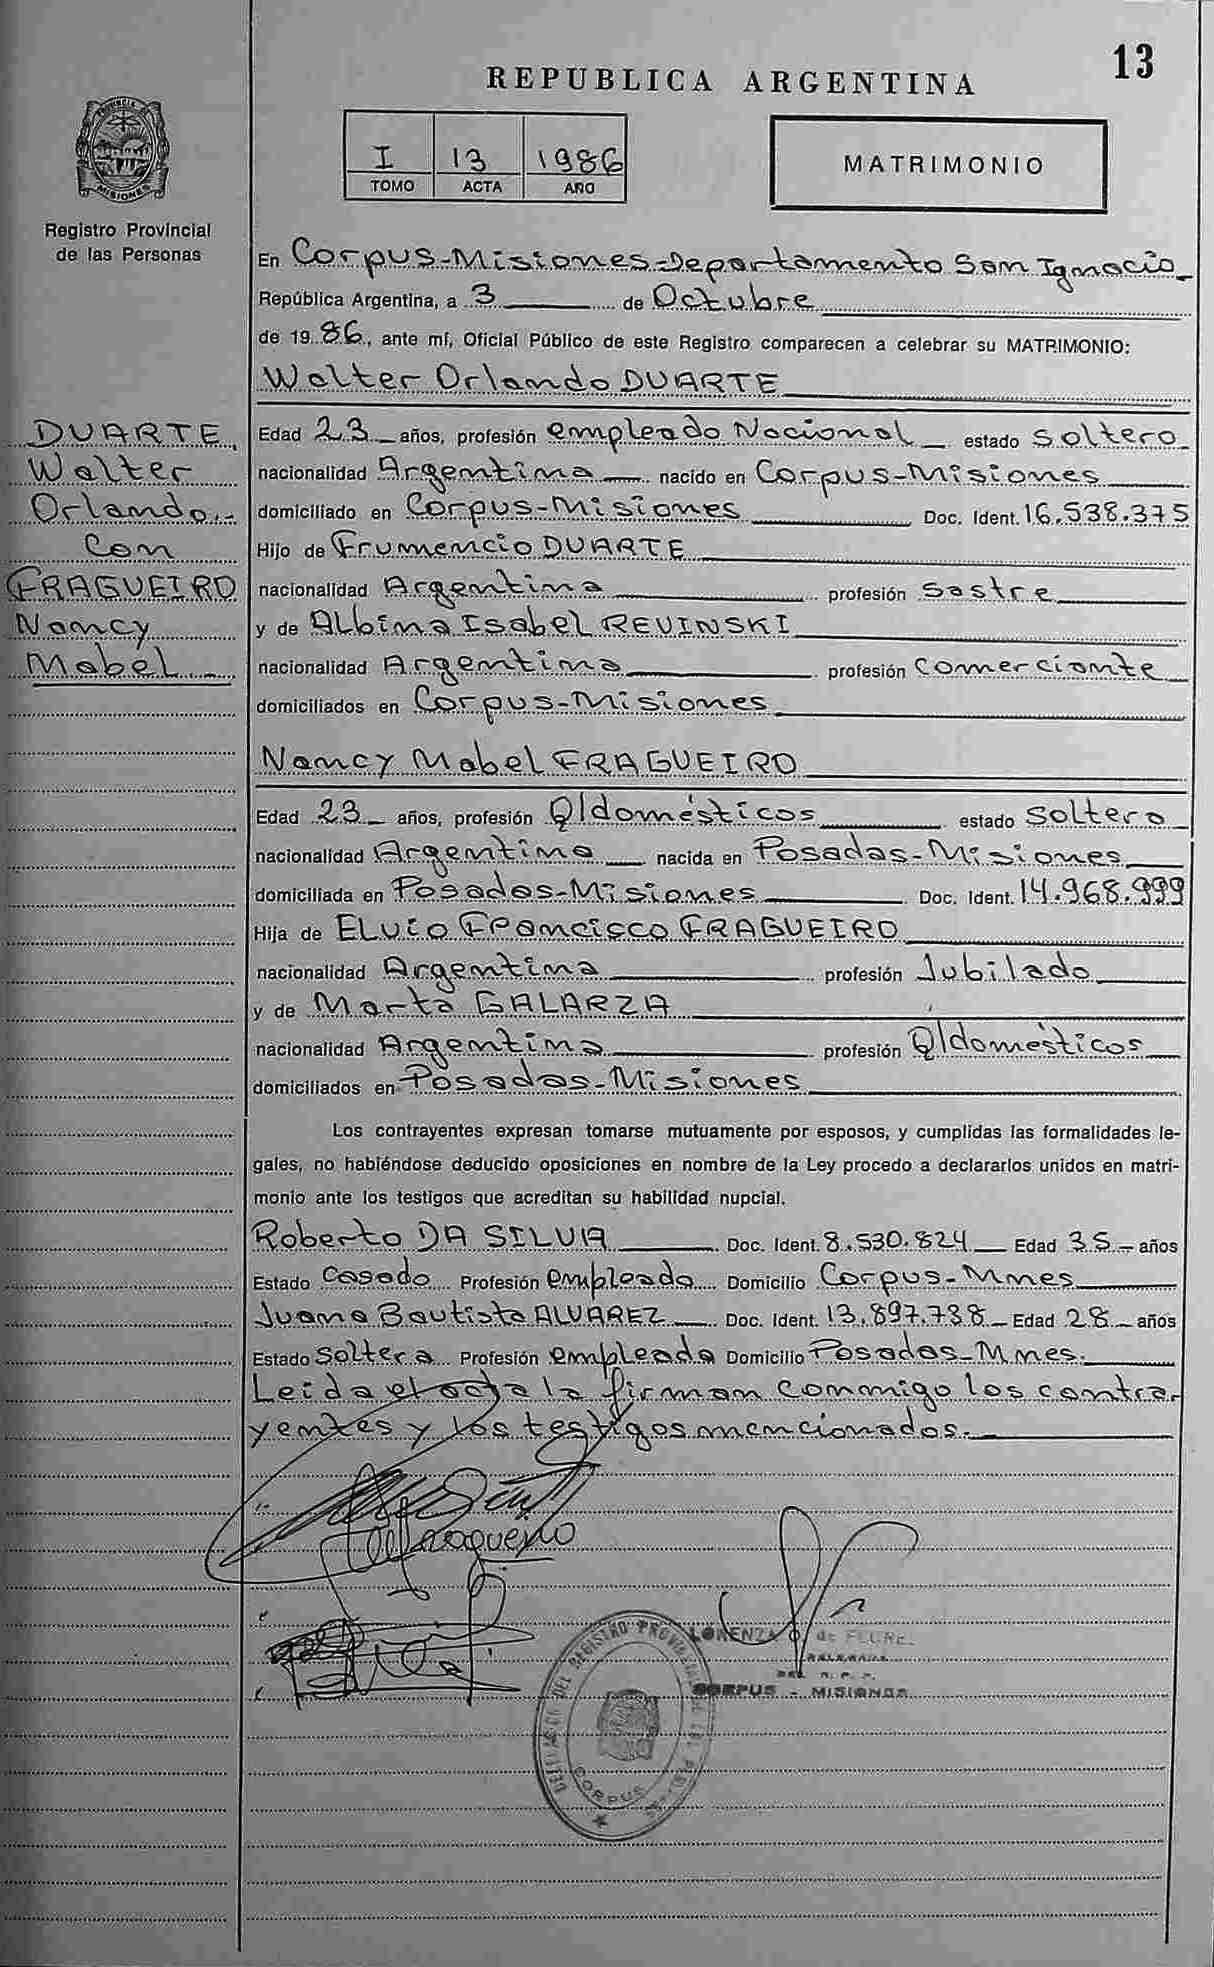 13
REPUBLICA ARGENTINA
I 13 1986
TOMO ACTA AÑO
MATRIMONIO
PROVINCIA
MISIONES
Registro Provincial
de las Personas
En Corpus-Misiones-Departamento San Ignacio
República Argentina, a 3 de Octubre
de 19 86, ante mí, Oficial Público de este Registro comparecen a celebrar su MATRIMONIO:
Walter Orlando DUARTE
DUARTE,
Walter
Orlando.-
Con
FRAGUEIRO
Nancy
Mabel.-
Edad 23 años, profesión empleado Nacional estado soltero
nacionalidad Argentina nacido en Corpus-Misiones
domiciliado en Corpus-Misiones Doc. Ident. 16.538.375
Hijo de Frumencio DUARTE
nacionalidad Argentina profesión Sastre
y de Albina Isabel REVINSKI
nacionalidad Argentina profesión comerciante
domiciliados en Corpus-Misiones
Nancy Mabel FRAGUEIRO
Edad 23 años, profesión Q/domésticos estado soltera
nacionalidad Argentina nacida en Posadas-Misiones
domiciliada en Posadas-Misiones Doc. Ident. 14.968.999
Hija de Elvio Francisco FRAGUEIRO
nacionalidad Argentina profesión Jubilado
y de Marta GALARZA
nacionalidad Argentina profesión Q/domésticos
domiciliados en Posadas-Misiones
Los contrayentes expresan tomarse mutuamente por esposos, y cumplidas las formalidades le-
gales, no habiéndose deducido oposiciones en nombre de la Ley procedo a declararlos unidos en matri-
monio ante los testigos que acreditan su habilidad nupcial.
Roberto DA SILVA Doc. Ident. 8.530.824 Edad 35 años
Estado casado Profesión empleado Domicilio Corpus-Mnes
Juana Bautista ALVAREZ Doc. Ident. 13.897.738 Edad 28 años
Estado soltera Profesión empleada Domicilio Posadas-Mnes.
Leida el acta la firman conmigo los contra-
yentes y los testigos mencionados.-
Fragueiro
LORENZA de
DEL R. P. P.
CORPUS - MISIONES
DEL REGISTRO PROVINCIAL DE LAS
CORPUS